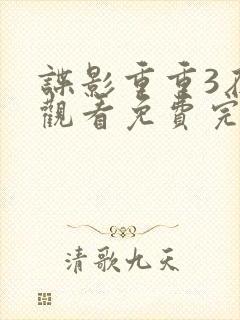 諜影重重3
觀看免費完
清歌九天